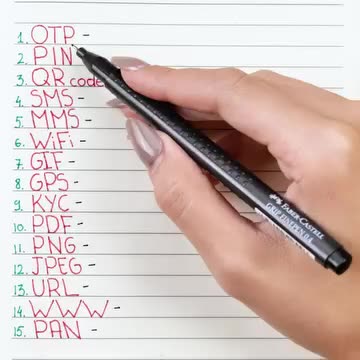 1. OTP -
2. PIN
3. QR code
4. SMS -
5. MMS -
6. WiFi -
7. GIF -
8. GPS -
9. KYC -
10. PDF -
11. PNG -
12. JPEG -
13. URL -
14. WWW -
15. PAN -
FABER-CASTELL
GRIP FINEPEN 0.4